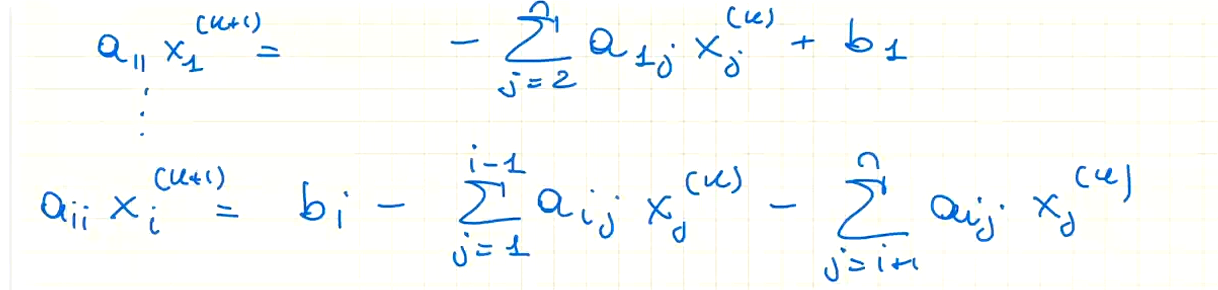 a₁₁ x₁^(k+1) = - ∑_{j=2}^{n} a_{1j} x_j^(k) + b₁
⋮
a_{ii} x_i^(k+1) = b_i - ∑_{j=1}^{i-1} a_{ij} x_j^(k) - ∑_{j=i+1}^{n} a_{ij} x_j^(k)